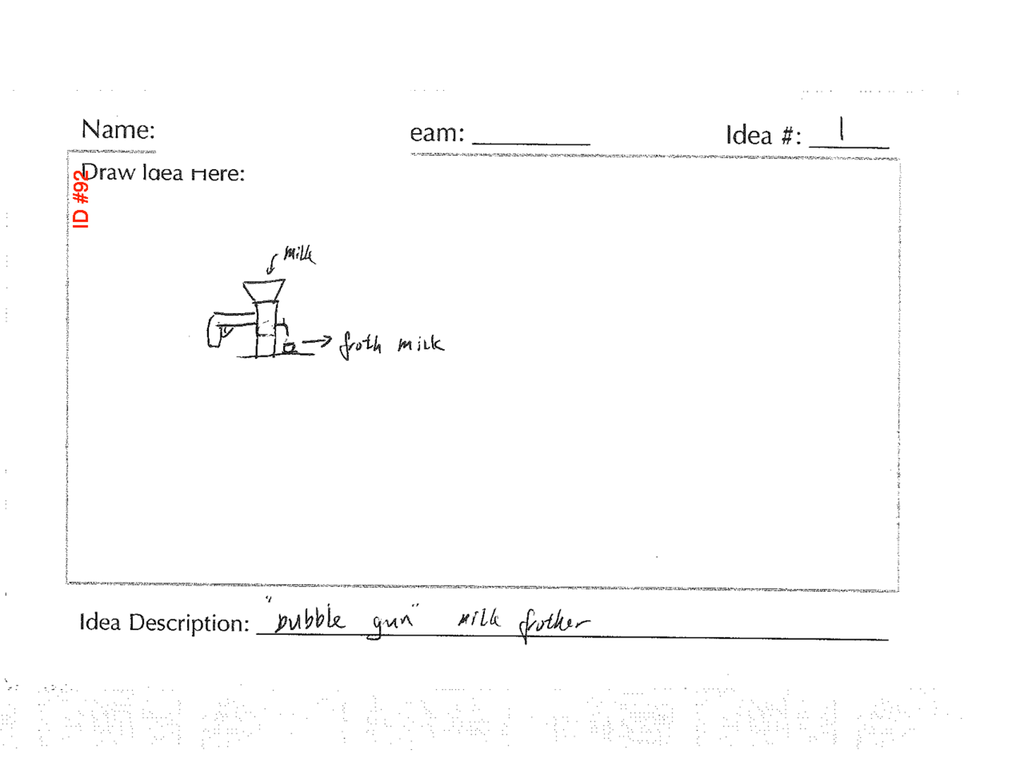 Name: eam: Idea #: 1
Draw Idea Here:
ID #92
milk
froth milk
Idea Description: "bubble gun" milk frother